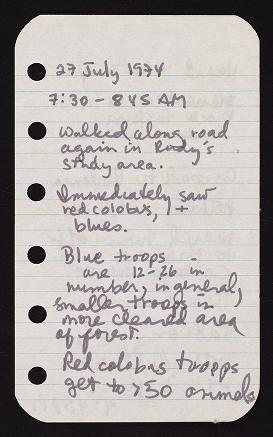 27 July 1974
7:30 - 845 AM
Walked along road
again in Rudy's
study area.
Immediately saw
red colobus, +
blues.
Blue troops -
are 12-26 in
number, in general,
smaller troops in
more cleared area
of forest.
Red colobus troops
get to >50 animals